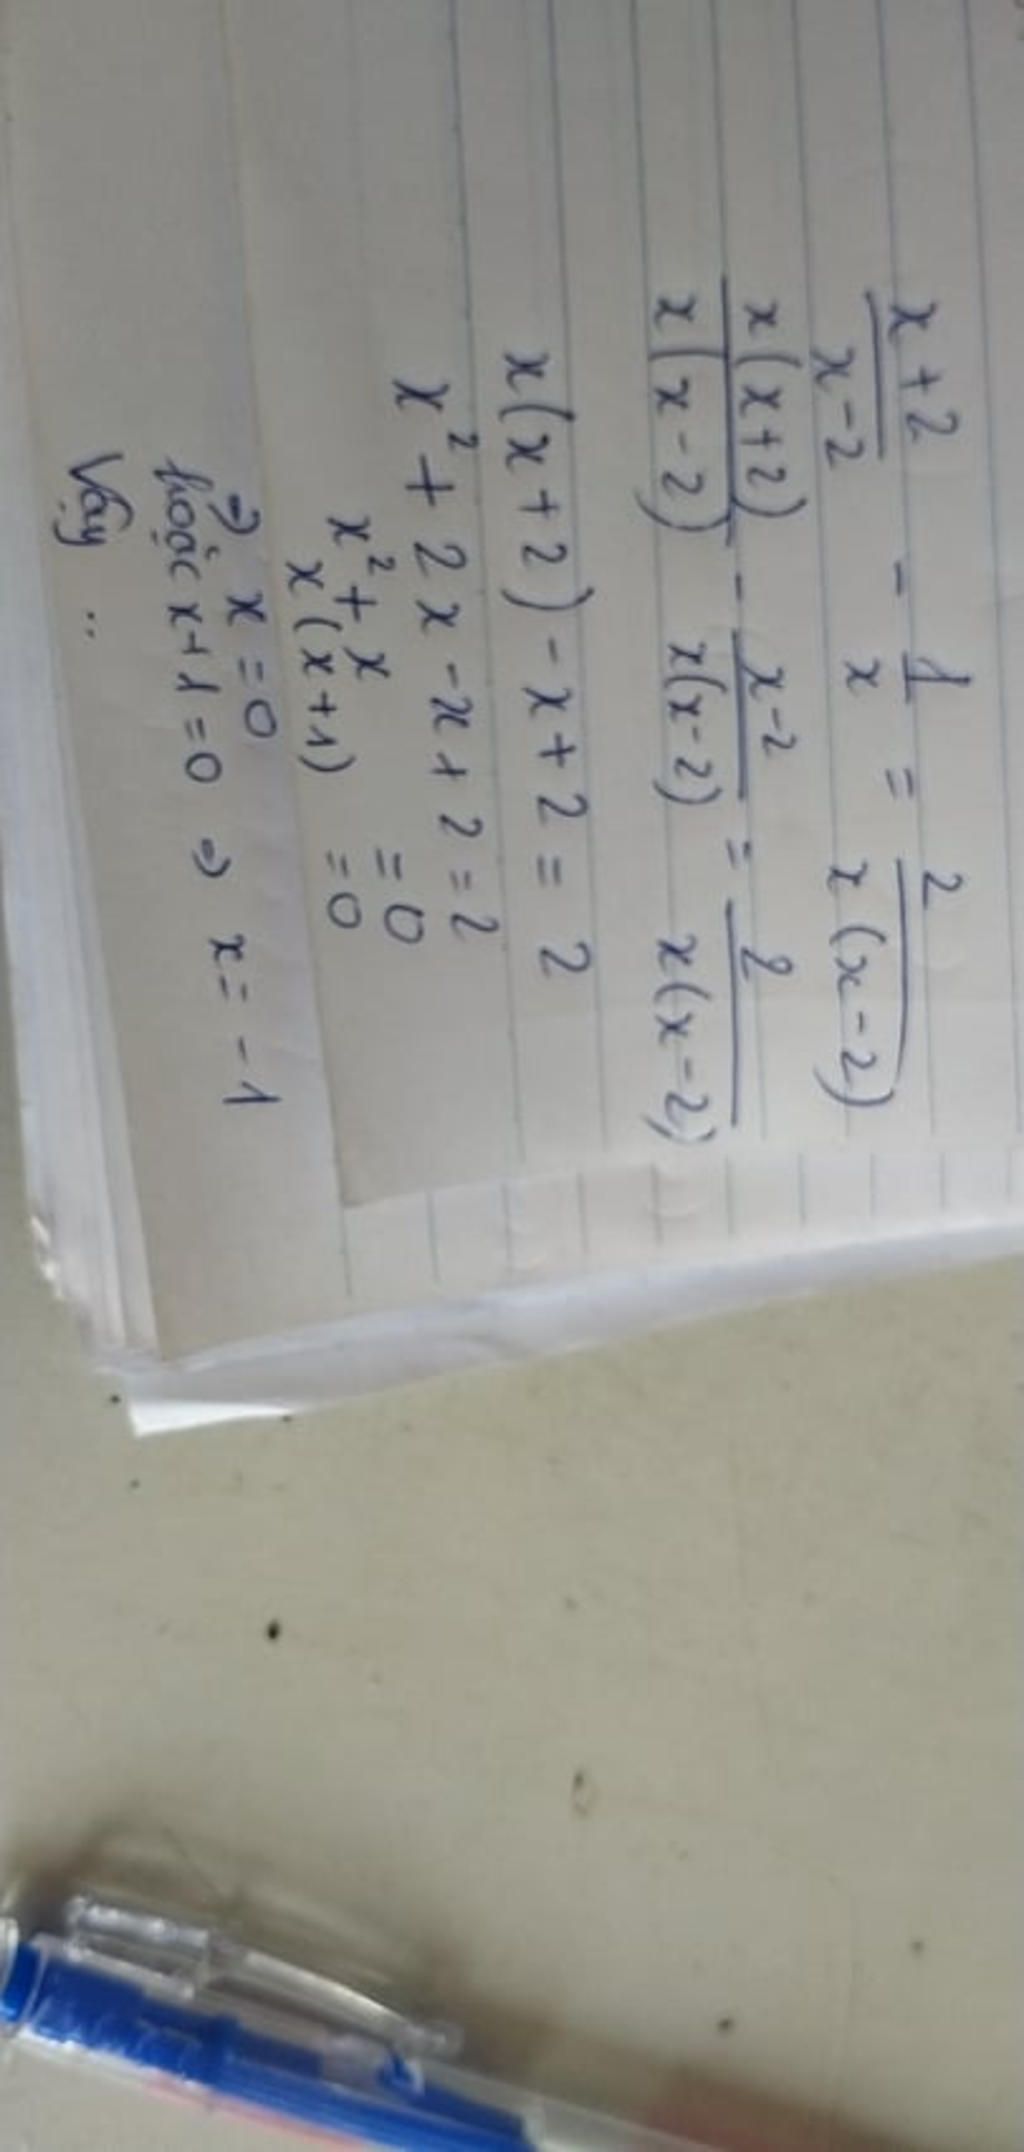 x+2/x-2 - 1/x = 2/x(x-2)
x(x+2)/x(x-2) - x-2/x(x-2) = 2/x(x-2)
x(x+2)-x+2 = 2
x²+2x-x+2=2
x²+x = 0
x(x+1) = 0
⇒ x=0
hoặc x+1=0 ⇒ x=-1
Vậy ..